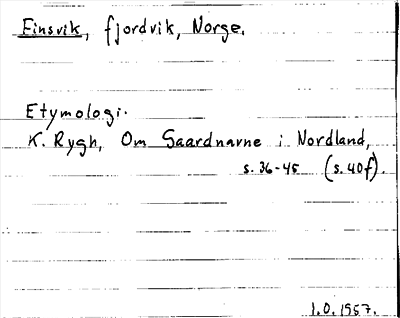 Finsvik, fjordvik, Norge.
Etymologi.
K. Rygh, Om Gaardnavne i Nordland,
s. 36-45 (s. 40f).
I.O. 1957.